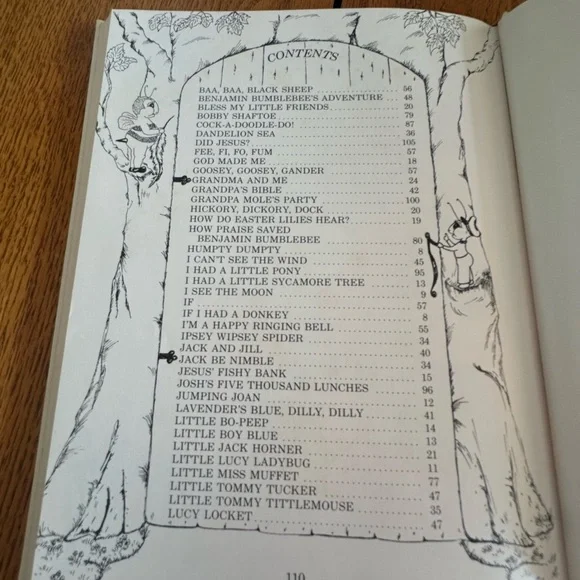 CONTENTS
BAA, BAA, BLACK SHEEP 56
BENJAMIN BUMBLEBEE'S ADVENTURE 48
BLESS MY LITTLE FRIENDS 20
BOBBY SHAFTOE 79
COCK-A-DOODLE-DO! 87
DANDELION SEA 36
DID JESUS? 105
FEE, FI, FO, FUM 57
GOD MADE ME 18
GOOSEY, GOOSEY, GANDER 57
GRANDMA AND ME 24
GRANDPA'S BIBLE 42
GRANDPA MOLE'S PARTY 100
HICKORY, DICKORY, DOCK 20
HOW DO EASTER LILIES HEAR? 19
HOW PRAISE SAVED
BENJAMIN BUMBLEBEE 80
HUMPTY DUMPTY 8
I CAN'T SEE THE WIND 45
I HAD A LITTLE PONY 95
I HAD A LITTLE SYCAMORE TREE 13
I SEE THE MOON 9
IF 57
IF I HAD A DONKEY 8
I'M A HAPPY RINGING BELL 55
IPSEY WIPSEY SPIDER 34
JACK AND JILL 40
JACK BE NIMBLE 34
JESUS' FISHY BANK 15
JOSH'S FIVE THOUSAND LUNCHES 96
JUMPING JOAN 12
LAVENDER'S BLUE, DILLY, DILLY 41
LITTLE BO-PEEP 14
LITTLE BOY BLUE 13
LITTLE JACK HORNER 21
LITTLE LUCY LADYBUG 11
LITTLE MISS MUFFET 77
LITTLE TOMMY TUCKER 47
LITTLE TOMMY TITTLEMOUSE 35
LUCY LOCKET 47
110